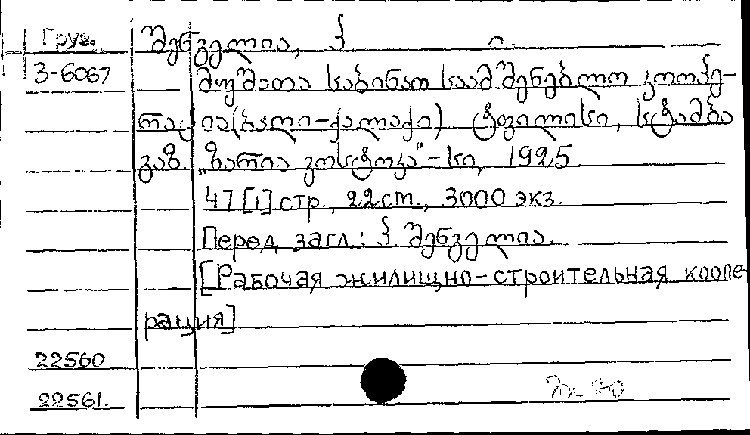 Груз. შენგელია, პ.
3-6067 მუშათა საბინაო საამშენებლო კოოპე-
რაცია (ბაღი-ქალაქი) ტფილისი, სტამბა
გაზ. „ზარია ვოსტოკა"-სი, 1925.
47 [1] стр., 22 ст., 3000 экз.
Перед загл.: პ. შენგელია.
[Рабочая жилищно-строительная коопе
рация]
22560
22561.